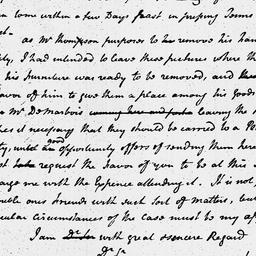 in town within a few Days past in preparing some
as Mr Thompson purposes to remove his fam
ly, I had intended to leave these pictures where th
his furniture was ready to be removed, and
favor of him to give them a place among his Goods
Mr DeMarbois leaving the
kes it necessary that they should be carried to a P
ty, until good opportunity offers of sending them here
st request the favor of you to be at this
arge me with the Expence attending it. It is not,
uble ones friends with such sort of matters, but
cular circumstances of the case must be my ap
I am with great esteem & Regard
Dr Sr